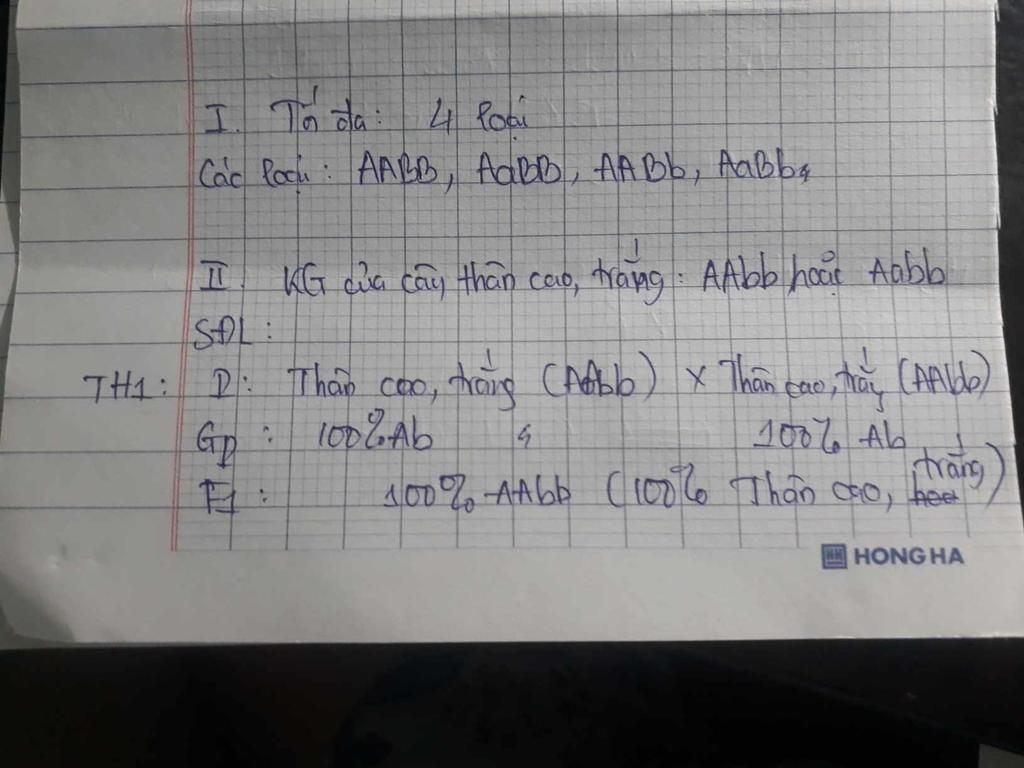 I. Tối đa: 4 loại
Các loại: AABB, AaBB, AABb, AaBb
II. KG của cây thân cao, trắng: AAbb hoặc Aabb
SĐL:
TH1: P: Thân cao, trắng (AAbb) x Thân cao, trắng (AAbb)
GP: 100% Ab ; 100% Ab
F1: 100% AAbb (100% Thân cao, trắng)
HONG HA